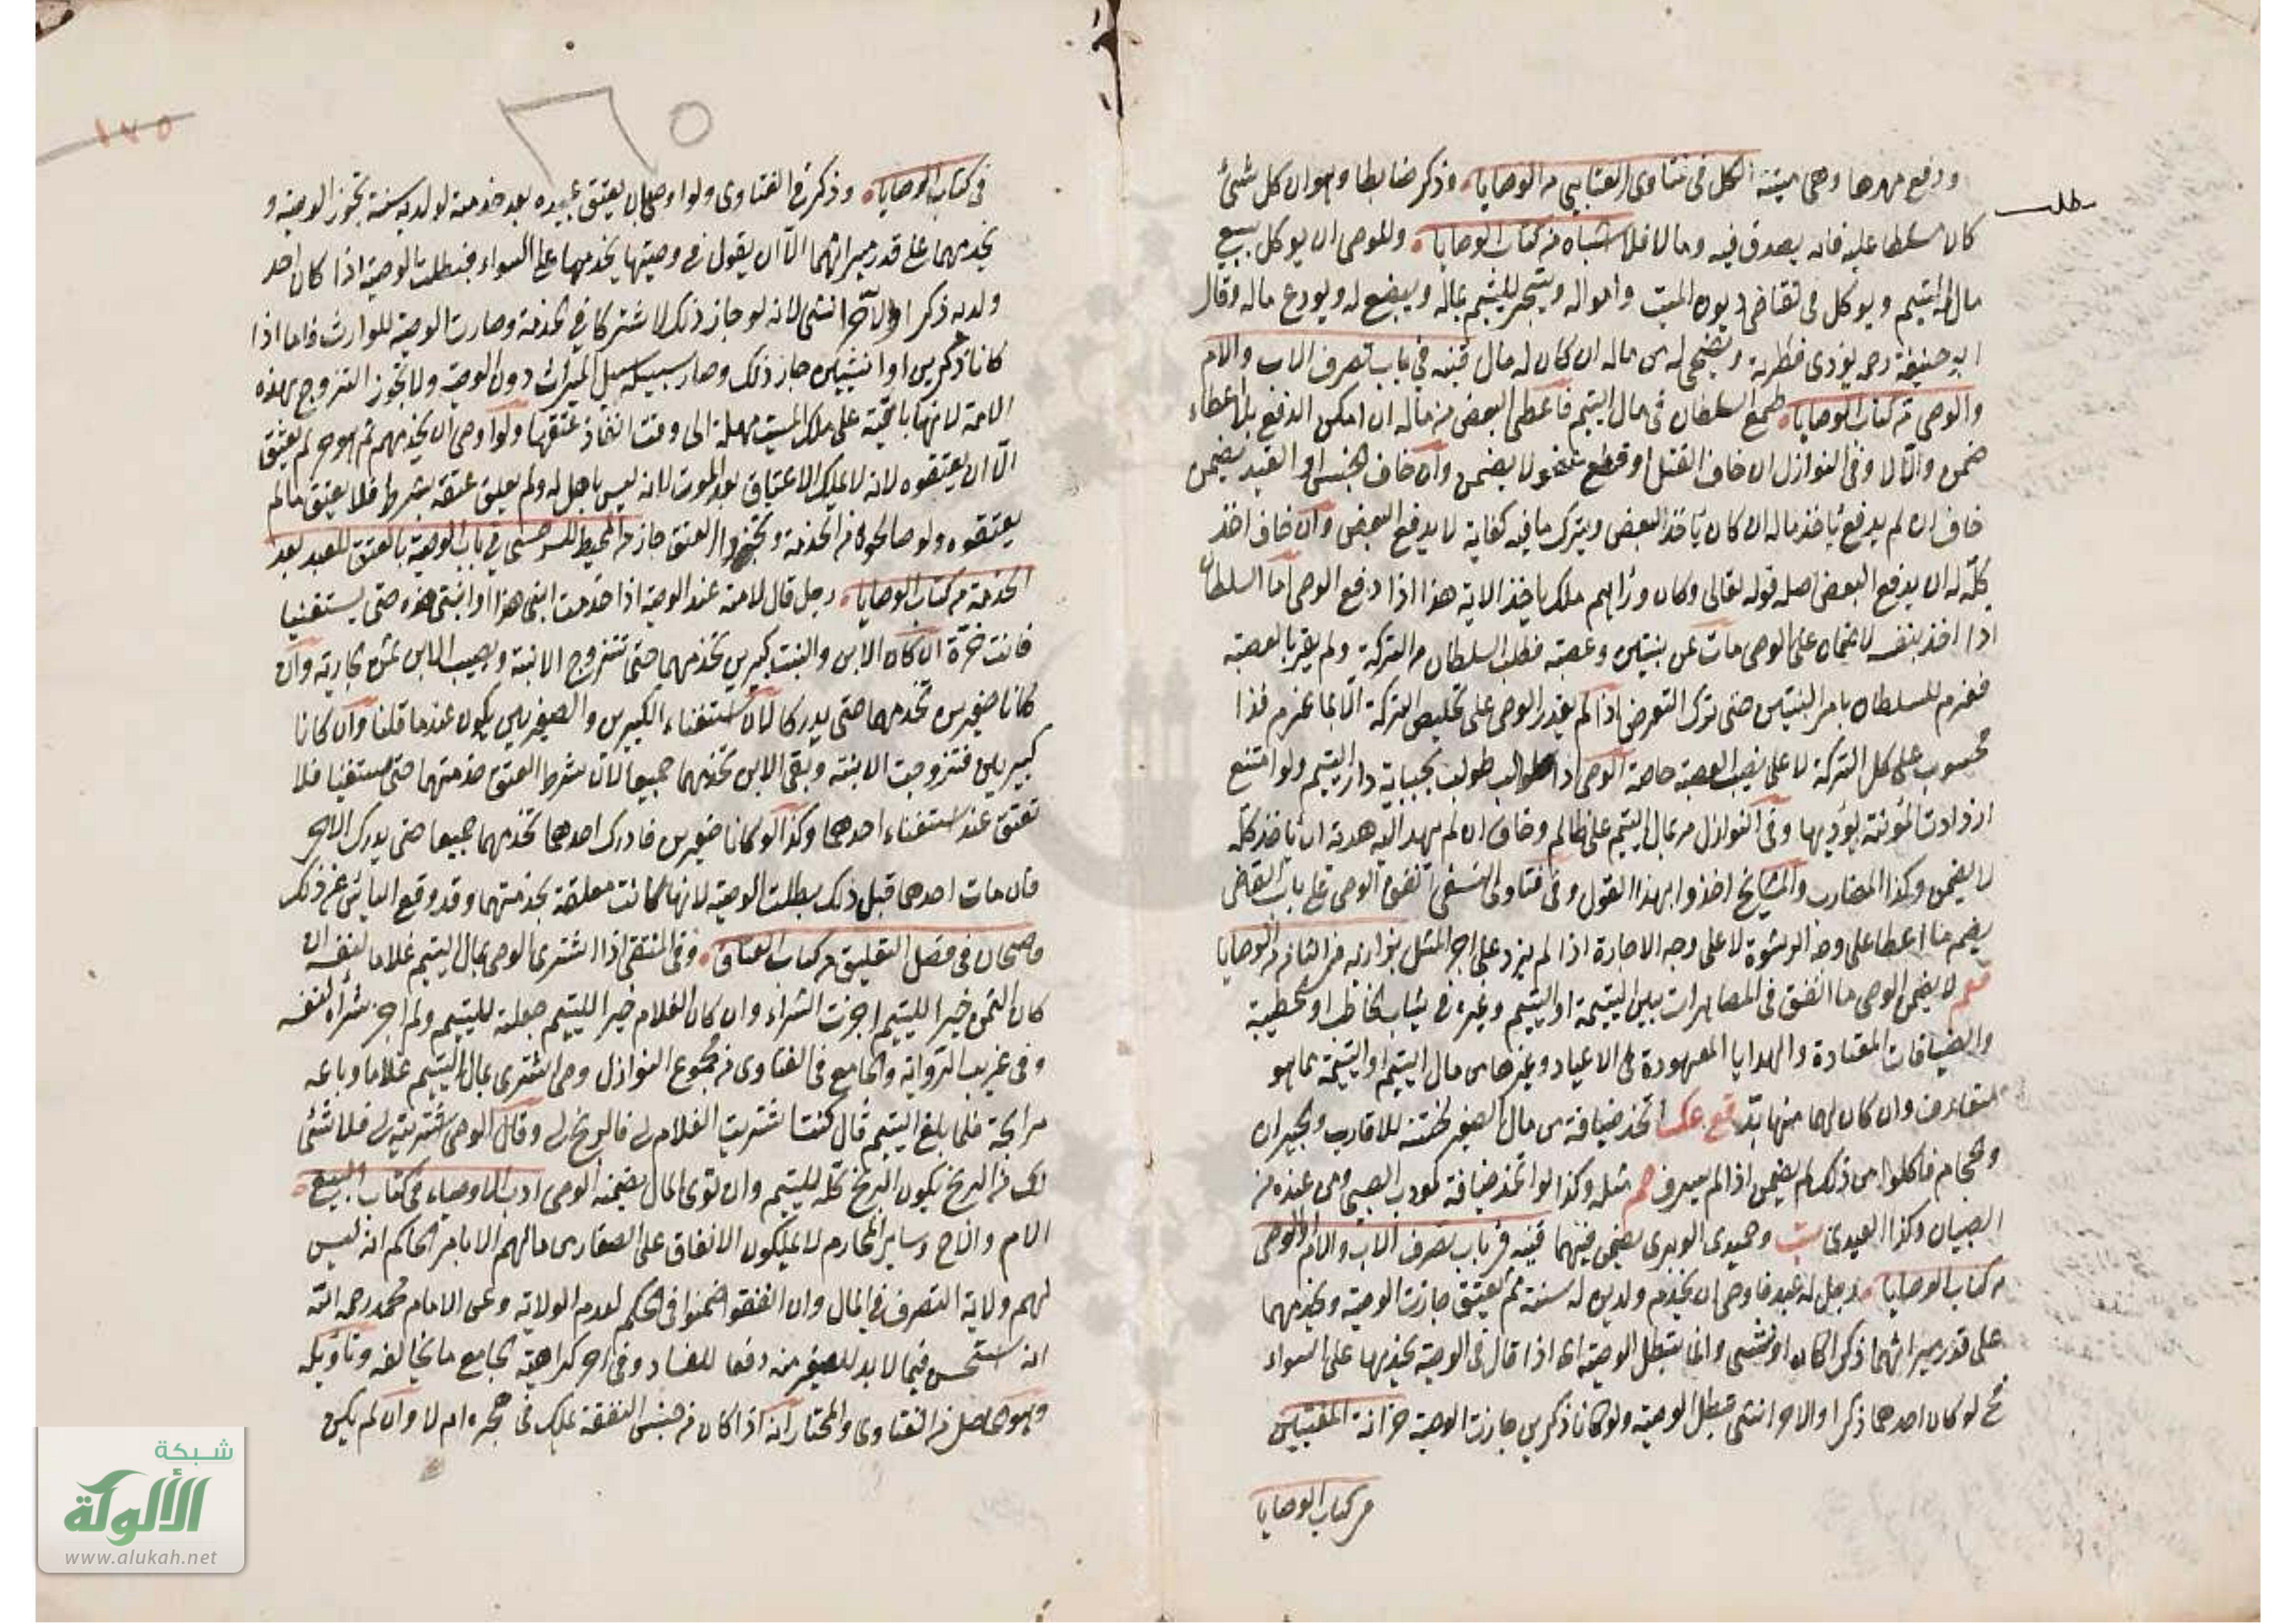 ودفع مهرها وهى ميتة الكل فى فتاوى العتابي من الوصايا وذكر ضابطا وهو ان كل شئ
كان مسلطا عليه فانه يصدق فيه وما لا فلا اشباه من كتاب الوصايا وللوصى ان يوكل ببيع
مال اليتيم ويوكل فى تقاضى ديون الميت وامواله ويتجر لليتيم بماله ويبضع له ويودع ماله وقال
ابو حنيفة رحمه يؤدى فطرته ويضحى له من ماله ان كان له مال قنيه في باب تصرف الاب والام
والوصى من كتاب الوصايا طمع السلطان فى مال اليتيم فاعطى البعض من ماله ان امكن الدفع بلا اعطاء
ضمن والا لا وفى النوازل ان خاف القتل او قطع عضو لا يضمن وان خاف الحبس او القيد يضمن
خاف ان لم يدفع يأخذ ماله ان كان يأخذ البعض ويترك ما فيه كفاية لا يدفع البعض وان خاف اخذ
كله له ان يدفع البعض اصله قوله تعالى وكان وراءهم ملك ياخذ الاية هذا اذا دفع الوصى اما السلطان
اذا اخذ بنفسه لا ضمان على الوصى مات عن بنتين وعصبة فطلب السلطان من التركة ولم يقر بالعصبة
فغرم للسلطان بامر البنتين حتى ترك التعرض اذا لم يقدر الوصى على تخليص التركة الا بما غرم فذا
محسوب على كل التركة لا على نصيب العصبة خاصة الوصى اذا طولب بجباية دار اليتيم ولو امتنع
ازدادت المؤنة يؤديها وفى النوازل مر بمال اليتيم على ظالم وخاف ان لم يهد اليه هدية ان يأخذ كله
لا يضمن وكذا المضارب والمشايخ اخذوا بهذا القول وفى فتاوى النسفى انفق الوصى على باب القاضى
يضمن ما اعطا على وجه الرشوة لا على وجه الاجارة اذا لم يزد على اجر المثل بزازيه من الثانى من الوصايا
لا يضمن الوصى ما انفق فى المصاهرات بين اليتيمة او اليتيم وغيره في ثياب الخاطب او الخطيبة
والضيافات المعتادة والهدايا المعهودة فى الاعياد وغيرها من مال اليتيم او اليتيمة مما هو
متعارف وان كان لها منها بد اتخذ ضيافة من مال الصغير لختنه للاقارب والجيران
والحجام فاكلوا من ذلك لم يضمن اذا لم يسرف مثله وكذا لو اتخذ ضيافة لمودب الصبى ومن عنده من
الصبيان وكذا العيدى وحميدى الوبرى يضمن فيهما قنيه في باب تصرف الاب والام والوصى
من كتاب الوصايا رجل له عبد فاوصى ان يخدم ولديه سنة ثم يعتق جازت الوصية ويخدمهما
على قدر ميراثهما ذكرا كان او انثى وانما تبطل الوصية اى اذا قال فى الوصية يخدمها على السواء
لو كان احدهما ذكرا والاخر انثى تبطل الوصية ولو كانا ذكرين جازت الوصية خزانة المفتيين
من كتاب الوصايا
فى كتاب الوصايا وذكر في الفتاوى ولو اوصى بان يعتق عبيده بعد خدمته لولديه سنة تجوز الوصية و
يخدمهما على قدر ميراثهما الا ان يقول في وصيتها يخدمها على السواء فبطلت الوصية اذا كان احد
ولديه ذكرا والاخر انثى لانه لو جاز ذلك لاشتركا في الخدمة وصارت الوصية للوارث فاما اذا
كانا ذكرين او انثيين جاز ذلك وصار سبيله سبيل الميراث دون الوصية ولا تجوز التزوج بهذه
الامة لانها باقية على ملك الميت مهملة الى وقت انفاذ عتقها ولو اوصى ان يخدمهم ثم هو حر لم يعتق
الا ان يعتقوه لانه لا يملك الاعتاق بعد الموت لانه ليس باهل له ولم يعلق عتقه بشرط فلا يعتق مالم
يعتقوه ولو صالحوه من الخدمة جاز من المحيط للسرخسى في باب الوصية بالعتق للعبد بعد
الخدمة من كتاب الوصايا رجل قال لامته عند الوصية اذا خدمت ابنى هذا او ابنتى هذه حتى يستغنيا
فانت حرة ان كان الابن والبنت كبيرين تخدمهما حتى تتزوج الابنة ويصيب الابن ثمن جارية وان
كانا صغيرين تخدمهما حتى يدركا لان استغناء الكبيرين والصغيرين يكون عندما قلنا وان كانا
كبيرين فتزوجت الابنة وبقى الابن تخدمهما جميعا لان شرط العتق خدمتهما حتى يستغنيا فلا
تعتق عند استغناء احدهما وكذا لو كانا صغيرين فادرك احدهما تخدمهما جميعا حتى يدرك الاخر
فان مات احدهما قبل ذلك بطلت الوصية لانها كانت معلقة بخدمتهما وقد وقع اليأس عن ذلك
قاضيخان فى فصل التعليق من كتاب العتاق وفى المنتقى اذا اشترى الوصى بمال اليتيم غلاما لنفسه ان
كان الثمن خيرا لليتيم اجزت الشراء وان كان الغلام خيرا لليتيم جعلته لليتيم ولم اجز شراه لنفسه
وفى غريب الرواية والجامع فى الفتاوى من مجموع النوازل وصى اشترى بمال اليتيم غلاما وباعه
مرابحة فلما بلغ اليتيم قال كنت اشتريت الغلام لى فالربح لى وقال الوصى اشتريته لى فلا شئ
لك من الربح يكون الربح كله لليتيم وان توى المال يضمنه الوصى ادب الاوصياء فى كتاب البيع
الام والاخ وساير المحارم لا يملكون الانفاق على الصغار من مالهم الا بامر الحاكم انه ليس
لهم ولاية التصرف في المال وان انفقوا ضمنوا فى الحكم لعدم الولاية وعن الامام محمد رحمه الله
انه استحسن فيما لا بد للصغير منه دفعا للفساد وفى اخر كراهية الجامع ما يخالفه وتأويله
وهو الحاصل من الفتاوى والمختار انه اذا كان من جنس النفقة يملك فى حجره ام لا وان لم يكن
شبكة
الألوكة
www.alukah.net